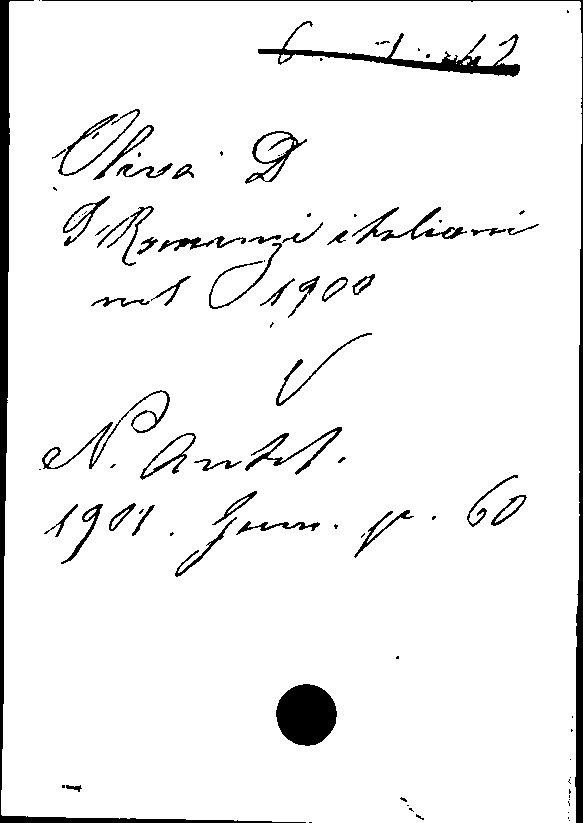 Oliva D
I Romanzi italiani
nel 1900
V
N. Antol.
1901. Genn. p. 60